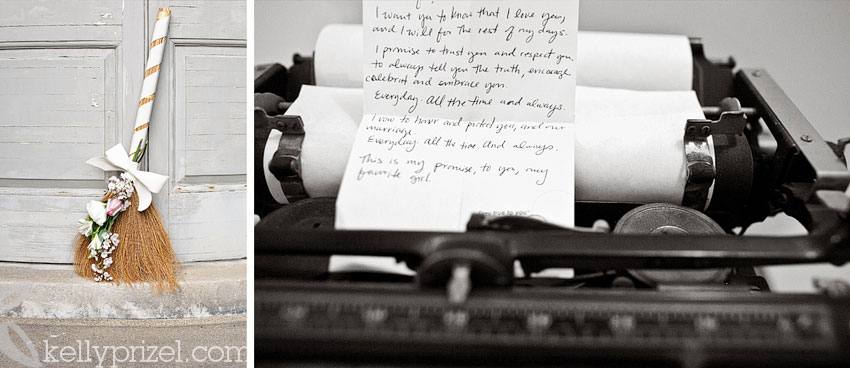 I want you to know that I love you,
and I will for the rest of my days.
I promise to trust you and respect you,
to always tell you the truth, encourage
celebrat and embrace you.
Everyday. All the time and always.
I vow to honor and protect you, and our
marriage.
Everyday. All the time. And always.
This is my promise, to you, my
favorite girl.
kellyprizel.com